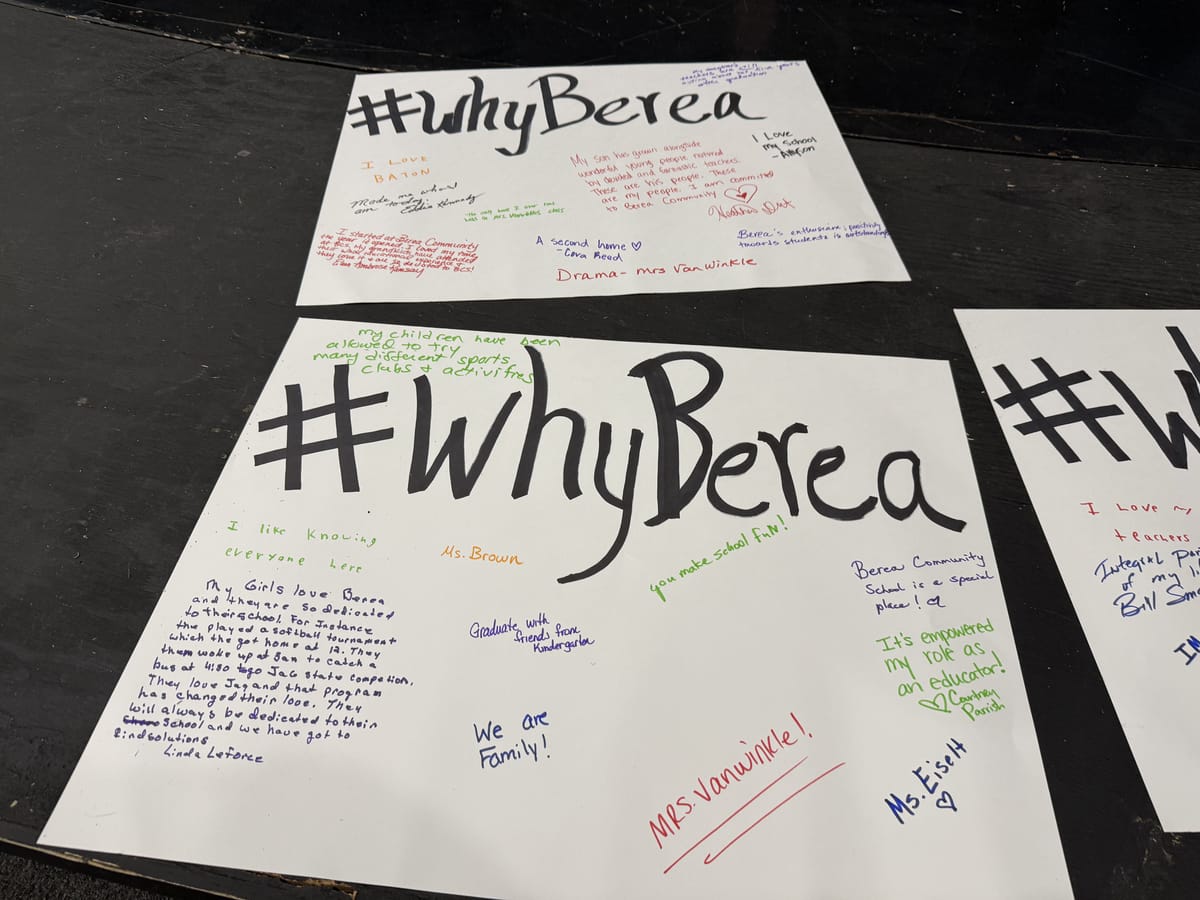 #WhyBerea
teachers are
after graduation
I LOVE
BATON
Made me who I
am today.
Eddie Kennedy
My son has grown alongside
wonderful young people nurtured
by devoted and fantastic teachers.
These are his people. These
are my people. I am committed
to Berea Community
I Love
my School
I started at Berea Community
the year it opened. I loved my time
at BCS. My grandkids have attended
this educational experience &
they love it & are so devoted to BCS!
A second home ♡
-Cora Reed
Drama- mrs VanWinkle
Berea's enthusiasm, positivity
towards students is outstanding
#WhyBerea
my children have been
allowed to try
many different sports
clubs & activitres
I like knowing
everyone here
Ms. Brown
you make school fun!
Berea Community
School is a special
place! ♡
My Girls love Berea
and they are so dedicated
to their school. For Instance
the played a softball tournament
which the got home at 12. They
them woke up at 3an to catch a
bus at 4:30 to go Jag state competion.
They love Jag and that program
has changed their love. They
will always be dedicated to their
School and we have got to
Lindsolutions
Linda Leforce
Graduate with
friends from
Kindergarten
It's empowered
my role as
an educator!
♡ Cartney
Parrish
We are
Family!
MRS. Vanwinkle!
Ms. Eiselt
♡
#W
I Love
teachers
Integral
of my
Bill
IN